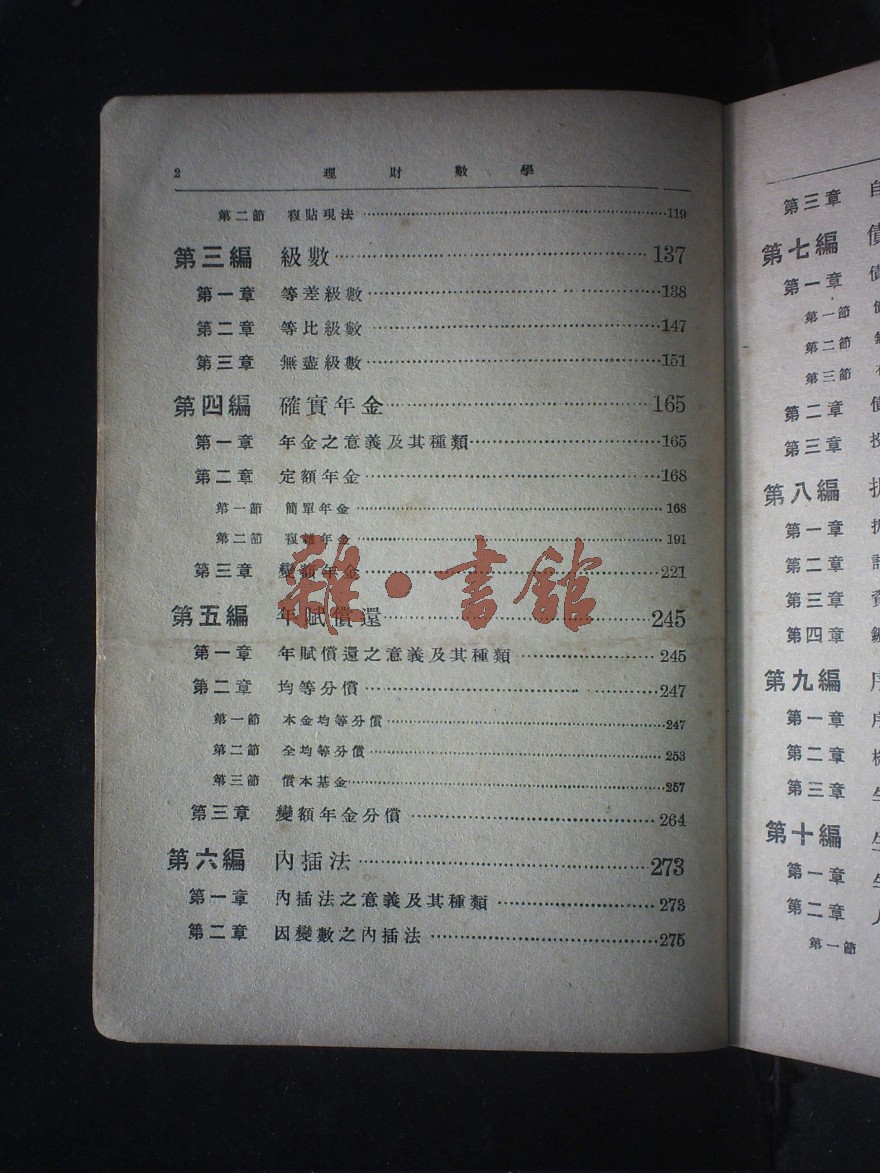 2 理財數學
第二節 複貼現法 119
第三編 級數 137
第一章 等差級數 138
第二章 等比級數 147
第三章 無盡級數 151
第四編 確實年金 165
第一章 年金之意義及其種類 165
第二章 定額年金 168
第一節 簡單年金 168
第二節 複雜年金 191
第三章 變額年金 221
雜·書舘
第五編 年賦償還 245
第一章 年賦償還之意義及其種類 245
第二章 均等分償 247
第一節 本金均等分償 247
第二節 全均等分償 253
第三節 償本基金 257
第三章 變額年金分償 264
第六編 內插法 273
第一章 內插法之意義及其種類 273
第二章 因變數之內插法 275
第三章
第七編 債
第一章 債
第一節
第二節
第三節
第二章 債
第三章 投
第八編
第一章
第二章
第三章
第四章
第九編 序
第一章 序
第二章 機
第三章 生
第十編 生
第一章 生
第二章 人
第一節